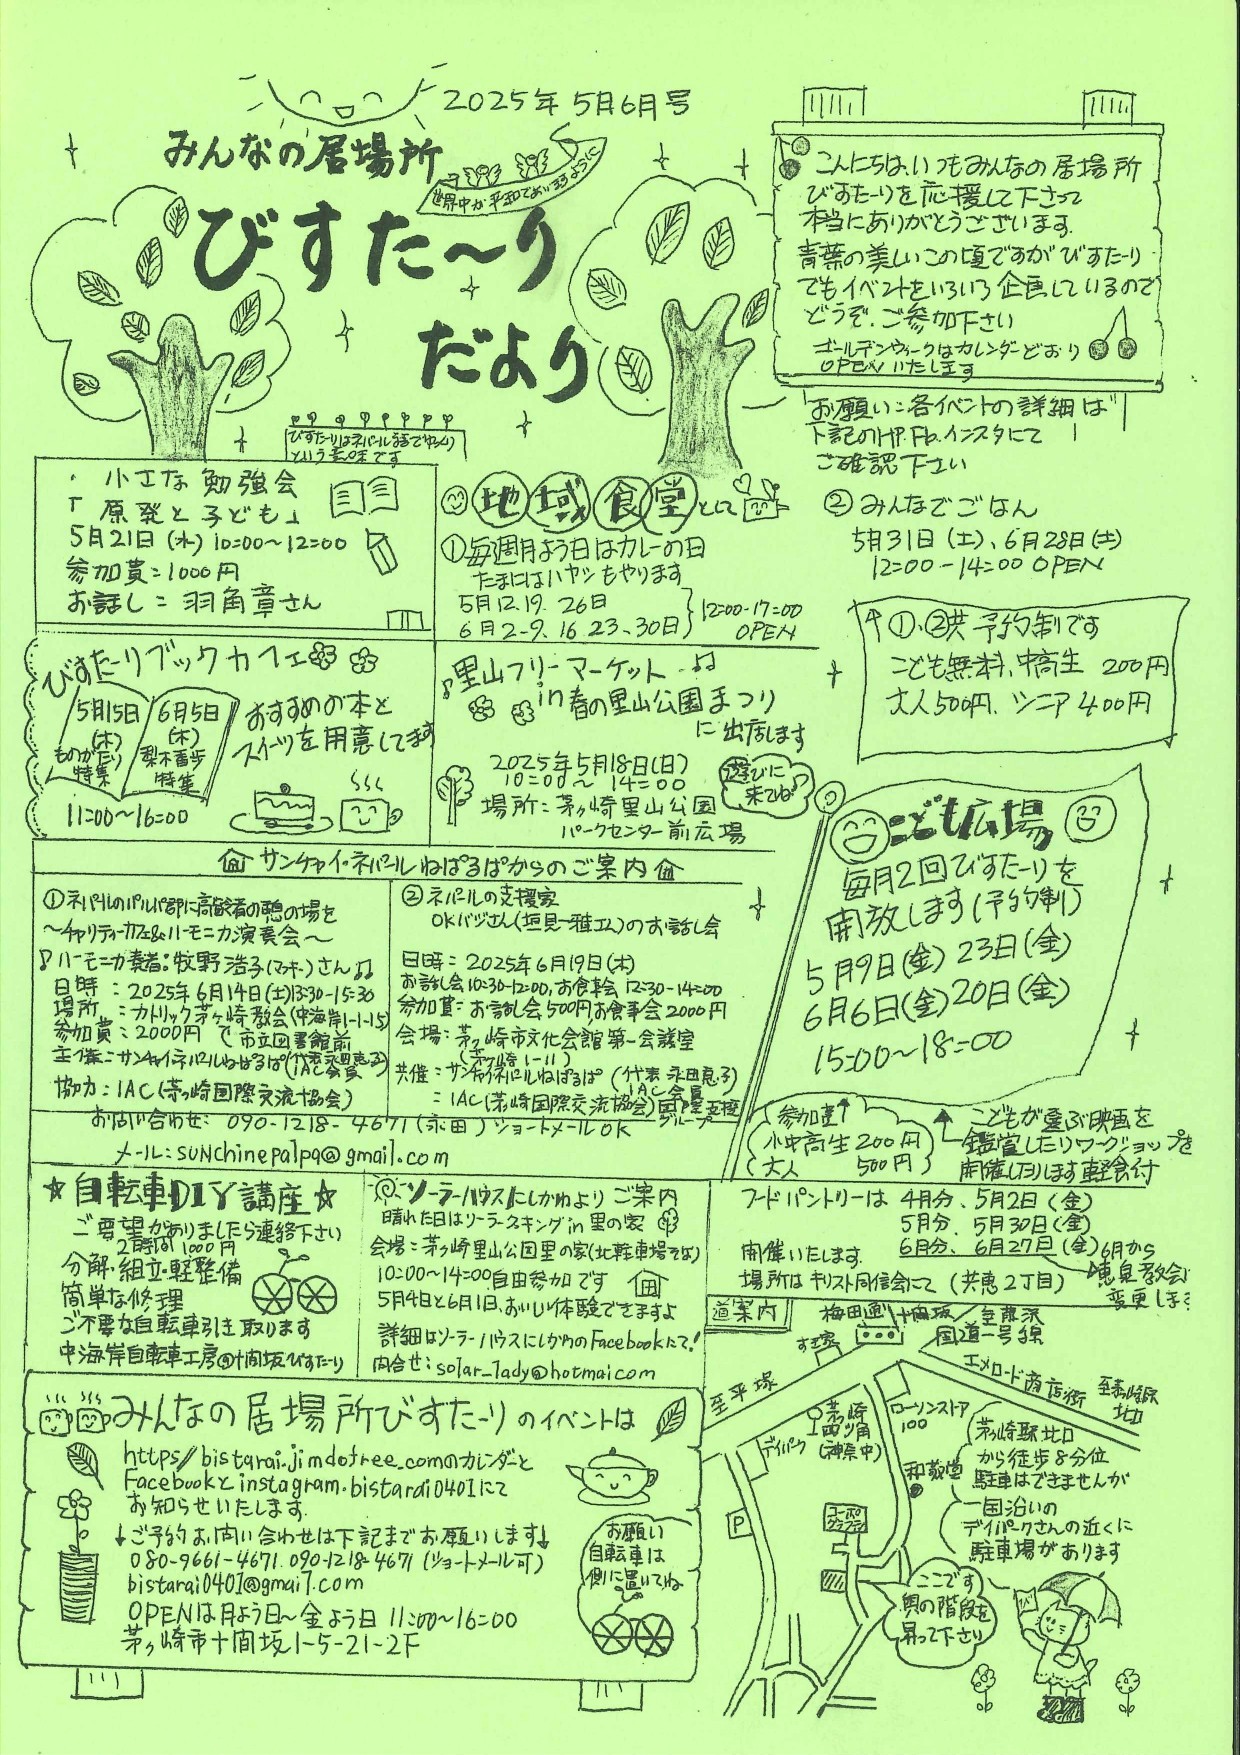 2025年5月6月号
みんなの居場所
世界中が平和であい〼ように
びすた～り
だより
びすたーりはネパール語でゆっくり
という意味です
こんにちは、いつもみんなの居場所
びすたーりを応援して下さって
本当にありがとうございます。
青葉の美しいこの頃ですがびすたーり
でもイベントをいろいろ企画しているので
どうぞ、ご参加下さい
ゴールデンウィークはカレンダーどおり
OPENいたします
お願い:各イベントの詳細は
下記のHP.Fb.インスタにて
ご確認下さい
・小さな勉強会
「原発と子ども」
5月21日(水)10:00～12:00
参加費:1000円
お話し:羽角章さん
地域食堂として
①毎週月よう日はカレーの日
たまにはハヤシもやります
5月12.19.26日
6月2-9.16.23.30日
12:00-17:00
OPEN
②みんなでごはん
5月31日(土)、6月28日(土)
12:00-14:00 OPEN
↑①、②共予約制です
こども無料、中高生 200円
大人500円、シニア400円
びすたーりブックカフェ
5月15日
(木)
ものがたり
特集
6月5日
(木)
梨木香歩
特集
おすすめの本と
スイーツを用意してます
11:00～16:00
♪里山フリーマーケット♫
in春の里山公園まつり
に出店します
2025年5月18日(日)
10:00～14:00
場所:茅ヶ崎里山公園
パークセンター前広場
遊びに
来てね♪
こども広場
毎月2回びすたーりを
開放します(予約制)
5月9日(金)23日(金)
6月6日(金)20日(金)
15:00～18:00
参加費↑
小中高生200円
大人 500円
こどもが選ぶ映画を
鑑賞したりワークショップを
開催したりします軽食付
サンチャイ・ネパールねぱるぱからのご案内
①ネパールのパルパ郡に高齢者の憩の場を
～チャリティーカフェ&ハーモニカ演奏会～
♪ハーモニカ奏者:牧野浩子(マッキー)さん♫
日時:2025年6月14日(土)13:30-15:30
場所:カトリック茅ヶ崎教会(中海岸1-1-15)
参加費:2000円 市立図書館前
主催:サンチャイネパールねぱるぱ(代表永田恵子)
IAC会員
協力:IAC(茅ヶ崎国際交流協会)
②ネパールの支援家
OKバジさん(垣見一雅さん)のお話し会
日時:2025年6月19日(木)
お話し会10:30-12:00,お食事会12:30-14:00
参加費:お話し会500円お食事会2000円
会場:茅ヶ崎市文化会館第一会議室
(茅ヶ崎1-11)
共催:サンチャイネパールねぱるぱ(代表永田恵子)
IAC会員
:IAC(茅ヶ崎国際交流協会)国際支援
グループ
お問い合わせ: 090-1218-4671(永田)ショートメールOK
メール:sunchinepalpa@gmail.com
☆自転車DIY講座☆
ご要望がありましたら連絡下さい
2時間1000円
分解・組立・軽整備
簡単な修理
ご不要な自転車引き取ります
中海岸自転車工房@十間坂びすたーり
ソーラーハウスにしかわよりご案内
晴れた日はソーラークッキングin里の家
会場:茅ヶ崎里山公園里の家(北駐車場そば)
10:00～14:00自由参加です
5月4日と6月1日、おいしい体験できますよ
詳細はソーラーハウスにしかわのFacebookにて!
問合せ:solar_lady@hotmai.com
フードパントリーは 4月分、5月2日(金)
5月分、5月30日(金)
6月分、6月27日(金)
開催いたします。
場所はキリスト同信会にて(共恵2丁目)
6月から
恵泉教会に
変更します
道案内
梅田通
十間坂
至藤沢
国道一号線
すき家
至平塚
エメロード商店街
至茅ヶ崎駅
北口
デイパーク
茅ヶ崎
四ツ角
(神奈中)
ローソンストア
100
和敬堂
P
茅ヶ崎駅北口
から徒歩8分位
駐車はできませんが
一国沿いの
デイパークさんの近くに
駐車場があります
ここです
奥の階段を
昇って下さい
みんなの居場所びすたーりのイベントは
https//bistarai.jimdofree.comのカレンダーと
Facebookとinstagram.bistarai0401にて
お知らせいたします。
↓ご予約お問い合わせは下記までお願いします↓
080-9661-4671.090-1218-4671(ショートメール可)
bistarai0401@gmail.com
OPENは月よう日～金よう日 11:00～16:00
茅ヶ崎市十間坂1-5-21-2F
お願い
自転車は
側に置いてね